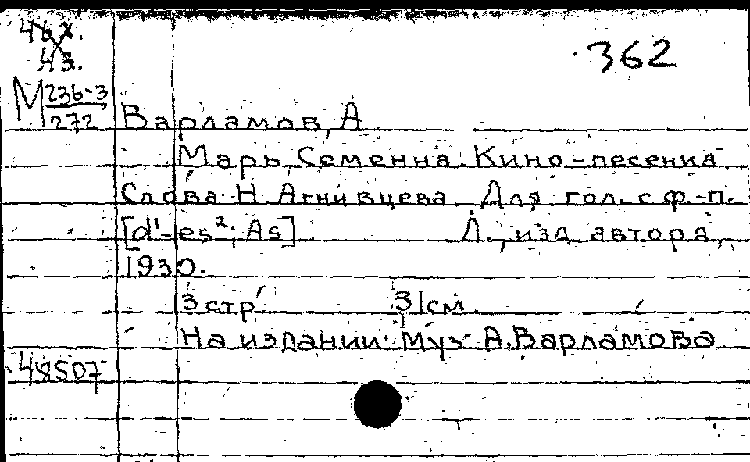 362
М 236-3
272
Варламов, А
Марь Семенна. Кино-песенка.
Слова Н. Агнивцева. Для гол. с ф.-п.
[d¹-es²; As] Л., изд. автора,
1930.
3 стр. 31 см.
На издании: Муз. А. Варламова
48507